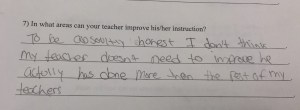 7) In what areas can your teacher improve his/her instruction?
To be honest I don't think
my teacher doesnt need to improve he
has done more then the rest of my
teachers